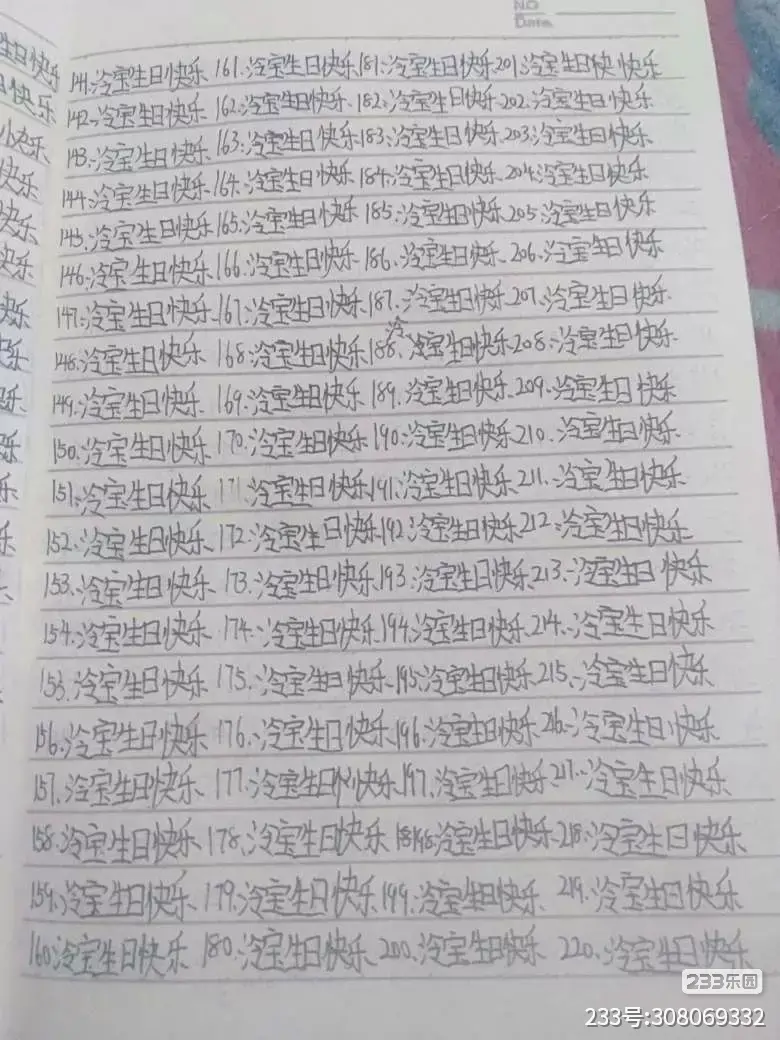 NO
Date
141.冷宝生日快乐 161.冷宝生日快乐 181.冷宝生日快乐 201.冷宝生日快快乐
142.冷宝生日快乐 162.冷宝生日快乐 182.冷宝生日快乐 202.冷宝生日快乐
143.冷宝生日快乐 163.冷宝生日快乐 183.冷宝生日快乐 203.冷宝生日快乐
144.冷宝生日快乐 164.冷宝生日快乐 184.冷宝生日快乐 204.冷宝生日快乐
145.冷宝生日快乐 165.冷宝生日快乐 185.冷宝生日快乐 205.冷宝生日快乐
146.冷宝生日快乐 166.冷宝生日快乐 186.冷宝生日快乐 206.冷宝生日快乐
147.冷宝生日快乐 167.冷宝生日快乐 187.冷宝生日快乐 207.冷宝生日快乐
148.冷宝生日快乐 168.冷宝生日快乐 188.冷宝生日快乐 208.冷宝生日快乐
149.冷宝生日快乐 169.冷宝生日快乐 189.冷宝生日快乐 209.冷宝生日快乐
150.冷宝生日快乐 170.冷宝生日快乐 190.冷宝生日快乐 210.冷宝生日快乐
151.冷宝生日快乐 171.冷宝生日快乐 191.冷宝生日快乐 211.冷宝生日快乐
152.冷宝生日快乐 172.冷宝生日快乐 192.冷宝生日快乐 212.冷宝生日快乐
153.冷宝生日快乐 173.冷宝生日快乐 193.冷宝生日快乐 213.冷宝生日快乐
154.冷宝生日快乐 174.冷宝生日快乐 194.冷宝生日快乐 214.冷宝生日快乐
155.冷宝生日快乐 175.冷宝生日快乐 195.冷宝生日快乐 215.冷宝生日快乐
156.冷宝生日快乐 176.冷宝生日快乐 196.冷宝生日快乐 216.冷宝生日快乐
157.冷宝生日快乐 177.冷宝生日快乐 197.冷宝生日快乐 217.冷宝生日快乐
158.冷宝生日快乐 178.冷宝生日快乐 198.冷宝生日快乐 218.冷宝生日快乐
159.冷宝生日快乐 179.冷宝生日快乐 199.冷宝生日快乐 219.冷宝生日快乐
160.冷宝生日快乐 180.冷宝生日快乐 200.冷宝生日快乐 220.冷宝生日快乐
233乐园
233号:308069332